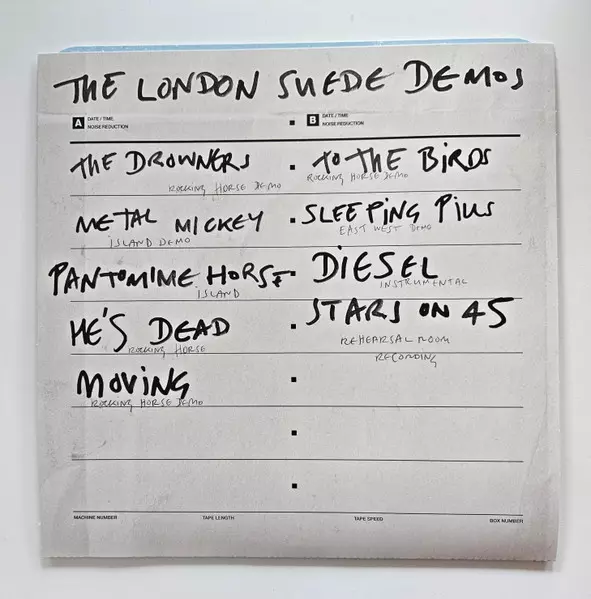 THE LONDON SUEDE DEMOS
A DATE / TIME NOISE REDUCTION
B DATE / TIME NOISE REDUCTION
THE DROWNERS
ROCKING HORSE DEMO
TO THE BIRDS
ROCKING HORSE DEMO
METAL MICKEY
ISLAND DEMO
SLEEPING PILLS
EAST WEST DEMO
PANTOMIME HORSE
ISLAND
DIESEL
INSTRUMENTAL
HE'S DEAD
ROCKING HORSE
STARS ON 45
REHEARSAL ROOM
RECORDING
MOVING
ROCKING HORSE DEMO
MACHINE NUMBER TAPE LENGTH TAPE SPEED BOX NUMBER